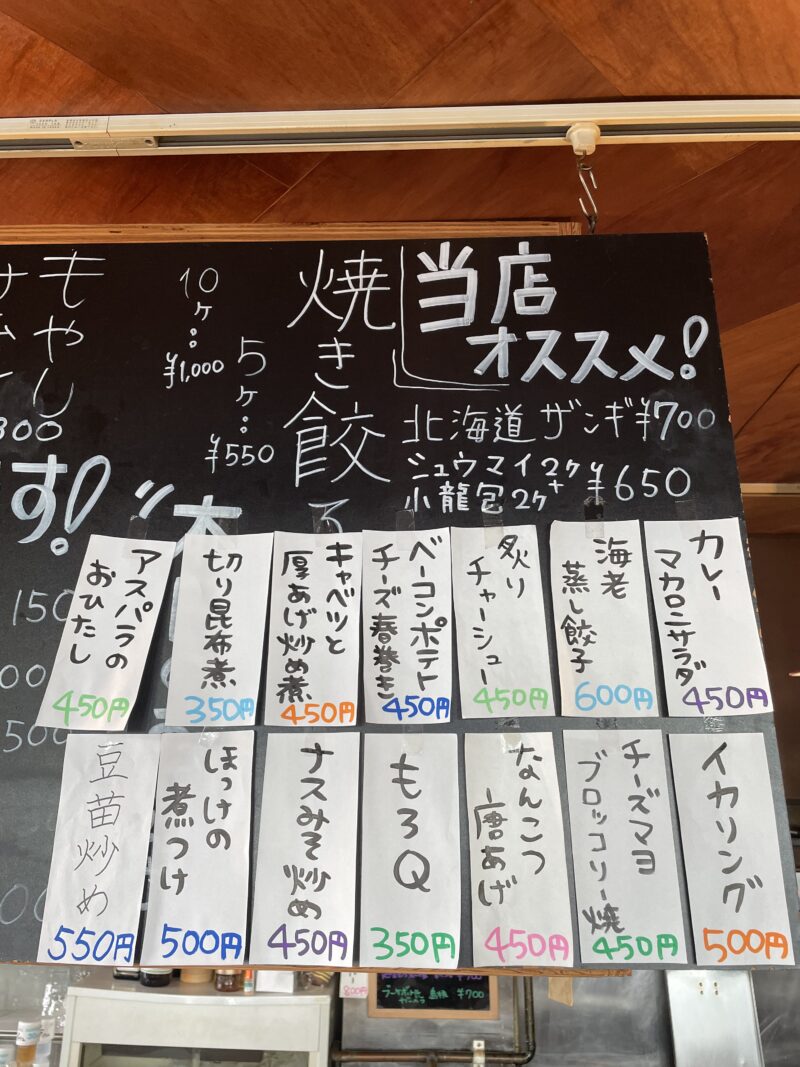 当店
オススメ!
北海道 ザンギ ¥700
シュウマイ2ケ+
小龍包2ケ
¥650
焼き餃子
5ヶ:
¥550
10ヶ:
¥1,000
もやし
す!
カレー
マカロニサラダ
450円
海老
蒸し餃子
600円
炙り
チャーシュー
450円
ベーコンポテト
チーズ春巻き
450円
キャベツと
厚あげ炒め煮
450円
切り昆布煮
350円
アスパラの
おひたし
450円
イカリング
500円
チーズマヨ
ブロッコリー焼
450円
なんこつ
唐あげ
450円
もろQ
350円
ナスみそ炒め
450円
ほっけの
煮つけ
500円
豆苗炒め
550円
¥700